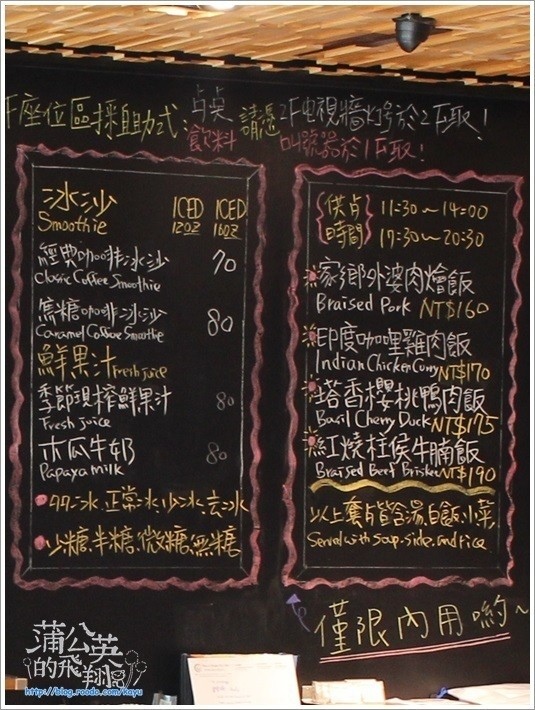 F座位區採自助式, 点桌 請選2F電視牆灯号於2F取!
飲料 叫號器於1F取!
冰沙 ICED ICED
Smoothie 12OZ 16OZ
經典咖啡冰沙 70
Classic Coffee Smoothie
焦糖咖啡冰沙 80
Caramel Coffee Smoothie
鮮果汁 Fresh juice
季節現榨鮮果汁 80
Fresh juice
木瓜牛奶 80
Papaya milk
冰、正常冰、少冰、去冰
少糖、半糖、微糖、無糖
供点 11:30~14:00
時間 17:30~20:30
家鄉外婆肉燴飯
Braised Pork NT$160
印度咖哩雞肉飯
Indian Chicken Curry NT$170
塔香櫻桃鴨肉飯
Basil Cherry Duck NT$175
紅燒柱侯牛腩飯
Braised Beef Brisket NT$190
以上套餐皆含湯、白飯、小菜
Served with soup, side, and rice
僅限內用喲~
蒲公英
的飛翔
http://blog.roodo.com/kayu